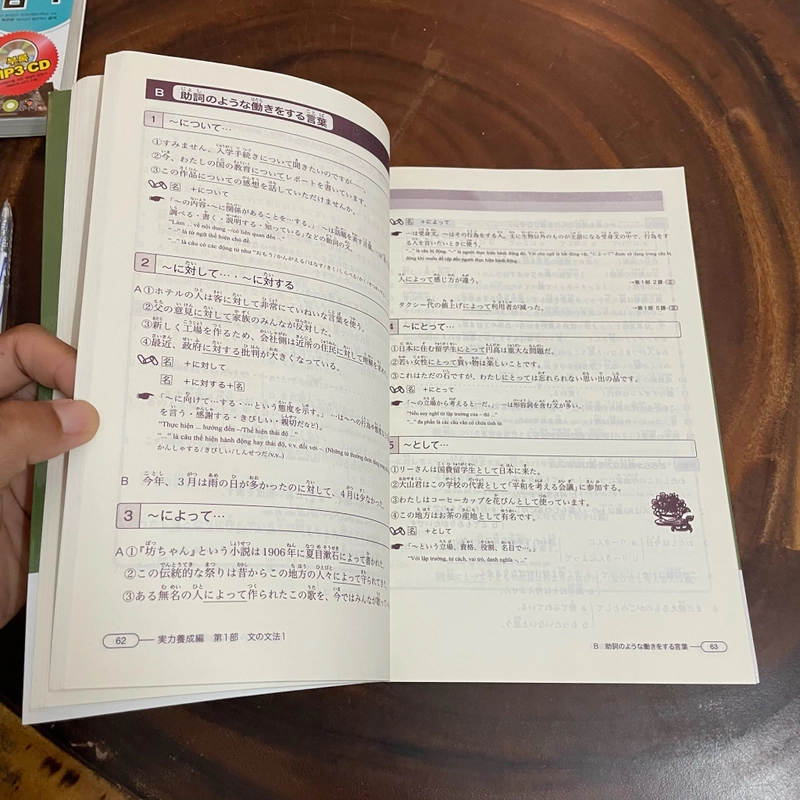 부록
MP3 CD
B 助詞のような働きをする言葉
1 ～について…
①すみません、入学手続きについて聞きたいのですが……。
②今、わたしの国の教育についてレポートを書いています。
③この作品についての感想を話していただけませんか。
名 +について
「～の内容・～に関係があることを…する。」
調べる・書く・説明する・知っている」などの動詞の文。
"Làm ... về nội dung ~/có liên quan đến ..."
"..." là từ ngữ thể hiện chủ đề.
2 ～に対して…・～に対する
A①ホテルの人は客に対して非常にていねいな言葉を使う。
②父の意見に対して家族のみんなが反対した。
③新しく工場を作るため、会社側は近所の住民に対して
④最近、政府に対する批判が大きくなっている。
名 +に対して
名 +に対する+名
「～に向けて…する・…という態度を示す。」
を言う・感謝する・きびしい・親切だなど)。
"Thực hiện ... hướng đến ~/Thể hiện thái độ ..."
"..." là câu thể hiện hành động hay thái độ, v.v. đối với ~
かんしゃする/きびしい/しんせつだ/v.v..)
B 今年、3月は雨の日が多かったのに対して、4月は少なかった。
3 ～によって…
A①『坊ちゃん』という小説は1906年に夏目漱石によって書かれた。
②この伝統的な祭りは昔からこの地方の人々によって守られてきた。
③ある無名の人によって作られたこの歌を、今ではみんなが
62 実力養成編 第1部 文の文法1
名 +によって
人によって感じ方が違う。
→第1部 2課
タクシー代の値上げによって利用者が減った。
→第1部 5課
4 ～にとって…
①日本に住む留学生にとって円高は重大な問題だ。
②若い女性にとって買い物は楽しいことです。
③これはただの石ですが、わたしにとっては忘れられない思い出の品です。
名 +にとって
「～の立場から考えると…だ。」 …は形容詞を含む文が多い。
"Nếu suy nghĩ từ lập trường của ~ thì ..."
"..." đa phần là các câu văn có chứa tính từ.
5 ～として…
①リーさんは国費留学生として日本に来た。
②大山君はこの学校の代表として「平和を考える会議」に参加する。
③わたしはコーヒーカップを花びんとして使っています。
④この地方はお茶の産地として有名です。
名 +として
「～という立場、資格、役割、名目で…。」
"Với lập trường, tư cách, vai trò, danh nghĩa ~, ..."
B 助詞のような働きをする言葉 63